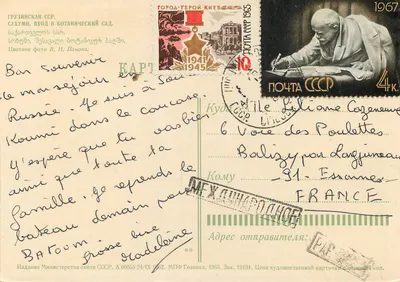 ГРУЗИНСКАЯ ССР.
СУХУМИ. ВХОД В БОТАНИЧЕСКИЙ САД.
საქართველოს სსრ.
Цветное фото
ГОРОД-ГЕРОЙ КИЕВ
1941
1945
ПОЧТА СССР 1965
10
К
1967
ПОЧТА СССР
4к.
КАРТ
Bon Souvenir
de mon séjour en
Russie. Je suis à Sou
Koumi dans le caucase.
J'espère que tu vas bien
ainsi que toute ta
famille. Je reprends le
bateau demain pour
BATOUM. grosse bise
Madeleine
Liliane Cazeneuve
6 Voie des Poulettes
Balizy par Longjumeau
91 - Essonnes
FRANCE
МЕЖДУНАРОДНОЕ
PAR
Адрес отправителя:
Издание Министерства связи СССР.